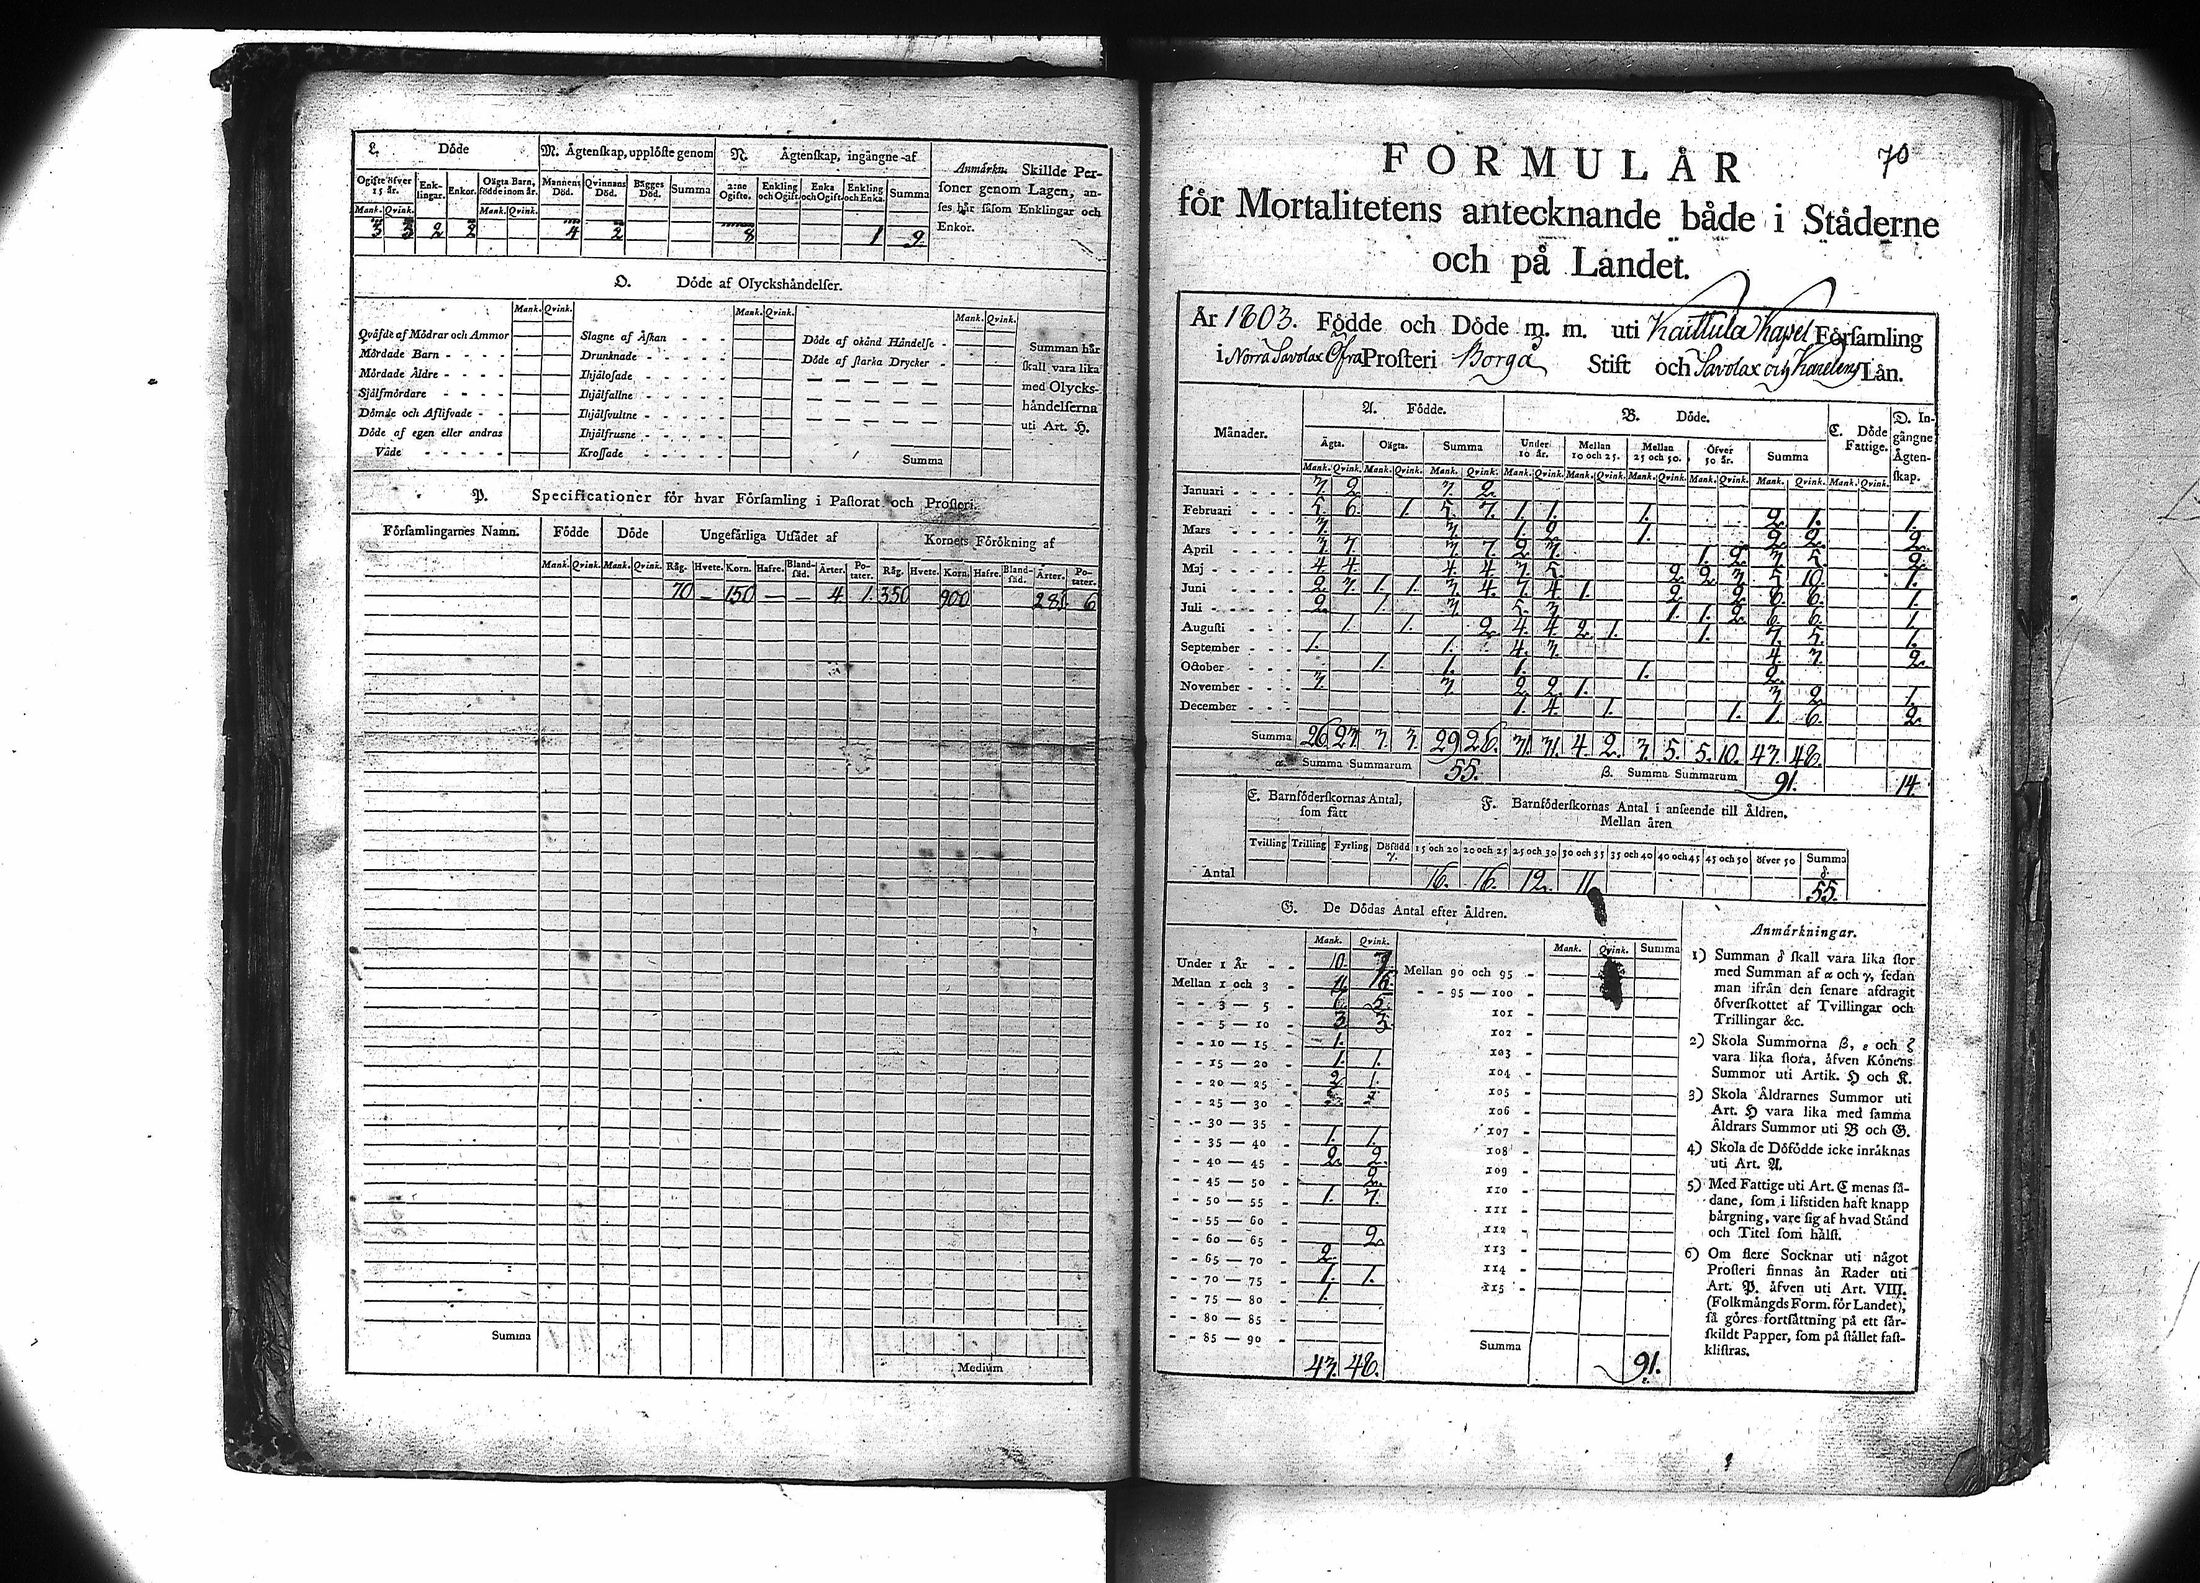 L. Döde
M. Ägtenskap, upplöste genom
N. Ägtenskap, ingångne af
Anmärkn. Skillde Personer genom Lagen, anses här såsom Enklingar och Enkor.
Ogifte öfver 15 år. Enklingar. Enkor. Oägta Barn, födde inom år. Mannens Död. Qvinnans Död. Bägges Död. Summa 2:ne Ogifte. Enkling och Ogift. Enka och Ogift. Enkling och Enka. Summa
Mank. Qvink. Mank. Qvink.
3 3 2 2 4 2 8 1 9
O. Döde af Olyckshändelser.
Mank. Qvink. Mank. Qvink. Mank. Qvink.
Qväfde af Mödrar och Ammor Slagne af Åskan - - - Döde af okänd Händelse -
Mördade Barn - - - - Drunknade - - - - Döde af starka Drycker -
Mördade Äldre - - - - Ihjälosade - - - -
Sjålfmördare - - - - Ihjälfallne - - - -
Dömde och Aflifvade - - Ihjälsvultne - - - -
Döde af egen eller andras Ihjälfrusne - - - - -
Våde - - - - - Krossade - - - - - Summa
Summan här skall vara lika med Olyckshändelserna uti Art. H.
P. Specificationer för hvar Församling i Pastorat och Prosteri.
Församlingarnes Namn. Födde Döde Ungefärliga Utsädet af Kornets Förökning af
Mank. Qvink. Mank. Qvink. Råg. Hvete. Korn. Hafre. Blandsäd. Ärter. Potater. Råg. Hvete. Korn. Hafre. Blandsäd. Ärter. Potater.
70 — 150 — — 4 1. 350 900 28. 6
Summa
Medium
70
FORMULÄR
för Mortalitetens antecknande både i Städerne
och på Landet.
År 1803. Födde och Döde m. m. uti Kaittula Kapel Församling
i Norra Savolax Öfra Prosteri Borgå Stift och Savolax och Karelens Län.
Månader. A. Födde. B. Döde. C. Döde Fattige. D. Ingångne Ägtenskap.
Ägta. Oägta. Summa Under 10 år. Mellan 10 och 25. Mellan 25 och 50. Öfver 50 år. Summa
Mank. Qvink. Mank. Qvink. Mank. Qvink. Mank. Qvink. Mank. Qvink. Mank. Qvink. Mank. Qvink. Mank. Qvink. Mank. Qvink.
Januari - - - - 7. 2. 7. 2.
Februari - - - - 5. 6. 1 5. 7. 1. 1. 1. 2. 1. 1.
Mars - - - - 3. 3. 1. 2. 1. 2. 2. 2.
April - - - - 3. 7. 3. 7. 2. 3. 1. 2. 3. 5. 2.
Maj - - - - 4. 4. 4. 4. 3. 5. 2. 2. 3. 5. 10. 1.
Juni - - - - 2. 3. 1. 1. 3. 4. 7. 4. 1. 2. 2. 8. 8. 1.
Juli - - - - 2. 1. 3. 5. 3. 1. 1. 2. 6. 6. 1.
Augusti - - - 1. 1. 2. 4. 4. 2. 1. 1. 7. 5. 1.
September - - - 1. 1. 4. 3. 4. 3. 2.
October - - - 1. 1. 1. 1. 2.
November - - - 3. 3. 2. 2. 1. 3. 2. 1.
December - - - 1. 4. 1. 1. 1. 6. 2.
Summa 26 23. 3. 3. 29 26. 31. 31. 4. 2. 3. 5. 5. 10. 43. 48.
α. Summa Summarum 55. β. Summa Summarum 91. 14.
E. Barnföderskornas Antal, som fått
F. Barnföderskornas Antal i anseende till Åldren, Mellan åren
Tvilling Trilling Fyrling Dödfödd γ. 15 och 20 20 och 25 25 och 30 30 och 35 35 och 40 40 och 45 45 och 50 öfver 50 Summa δ.
Antal 16. 16. 12. 11. 55.
G. De Dödas Antal efter Åldren.
Mank. Qvink. Mank. Qvink. Summa
Under 1 År - - 10.
Mellan 1 och 3 - 11 16.
- - 3 — 5 - 7. 5.
- - 5 — 10 - 3 3.
- - 10 — 15 - 1.
- - 15 — 20 - 1. 1.
- - 20 — 25 - 2. 1.
- - 25 — 30 -
- - 30 — 35 -
- - 35 — 40 - 1. 1.
- - 40 — 45 - 2. 2.
- - 45 — 50 - 2.
- - 50 — 55 - 1. 7.
- - 55 — 60 -
- - 60 — 65 - 2.
- - 65 — 70 - 2.
- - 70 — 75 - 1. 1.
- - 75 — 80 - 1.
- - 80 — 85 -
- - 85 — 90 -
43. 48.
Mellan 90 och 95 -
- - 95 — 100 -
101 -
102 -
103 -
104 -
105 -
106 -
107 -
108 -
109 -
110 -
111 -
112 -
113 -
114 -
115 -
Summa 91.
Anmärkningar.
1) Summan δ skall vara lika stor
med Summan af α och γ, sedan
man ifrån den senare afdragit
öfverskottet af Tvillingar och
Trillingar &c.
2) Skola Summorna β, ε och ζ
vara lika stora, äfven Könens
Summor uti Artik. H och K.
3) Skola Åldrarnes Summor uti
Art. H vara lika med samma
Åldrars Summor uti B och G.
4) Skola de Döfödde icke inräknas
uti Art. A.
5) Med Fattige uti Art. C menas sådane, som i lifstiden haft knapp
bärgning, vare sig af hvad Stånd
och Titel som hälst.
6) Om flere Socknar uti något
Prosteri finnas än Rader uti
Art. P. äfven uti Art. VIII.
(Folkmängds Form. för Landet),
så göres fortsättning på ett särskildt Papper, som på stället fastklistras.